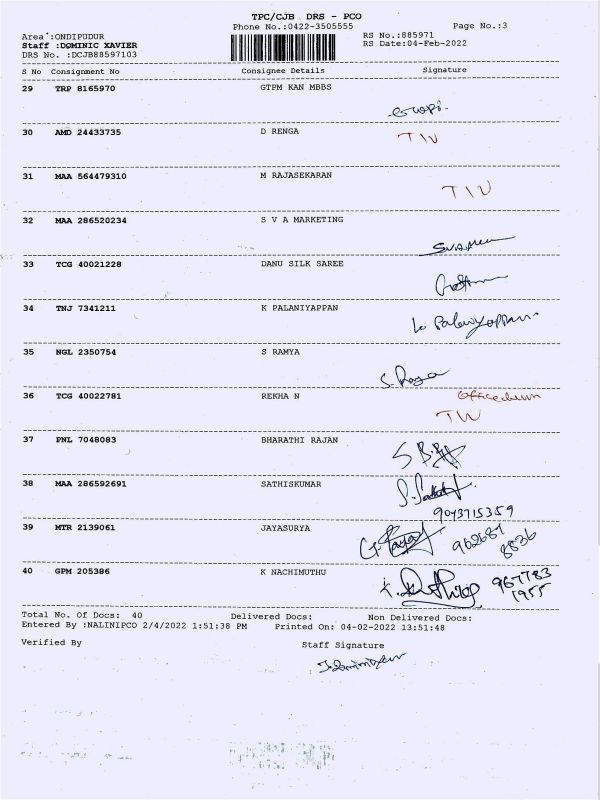 TPC/CJB DRS - PCO
Phone No.:0422-3505555 Page No.:3
Area :ONDIPUDUR RS No.:885971
Staff :DOMINIC XAVIER RS Date:04-Feb-2022
DRS No. :DCJB88597103
S No Consignment No Consignee Details Signature
29 TRP 8165970 GTPM KAN MBBS
30 AMD 24433735 D RENGA
31 MAA 564479310 M RAJASEKARAN
32 MAA 286520234 S V A MARKETING
33 TCG 40021228 DANU SILK SAREE
34 TNJ 7341211 K PALANIYAPPAN
35 NGL 2350754 S RAMYA
36 TCG 40022781 REKHA N
37 PNL 7048083 BHARATHI RAJAN
38 MAA 286592691 SATHISKUMAR
9043715359
39 MTR 2139061 JAYASURYA
902687
8836
40 GPM 205386 K NACHIMUTHU
967783
1955
Total No. Of Docs: 40 Delivered Docs: Non Delivered Docs:
Entered By :NALINIPCO 2/4/2022 1:51:38 PM Printed On: 04-02-2022 13:51:48
Verified By Staff Signature